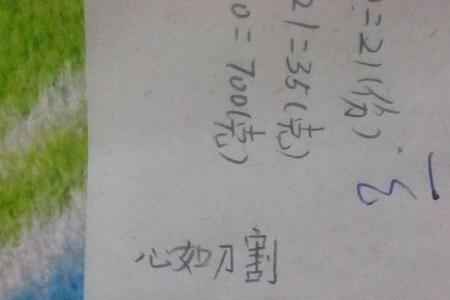 =21(份)
21=35(克)
0=700(克)
心如刀割